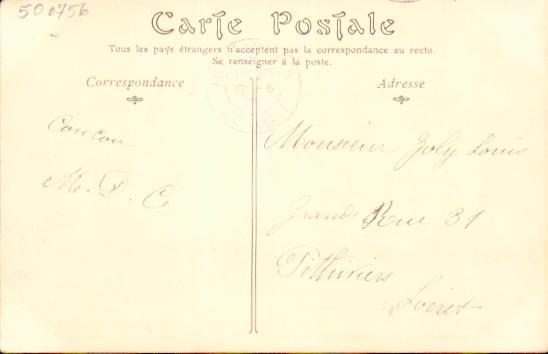 500756
Carte Postale
Tous les pays étrangers n'acceptent pas la correspondance au recto.
Se renseigner à la poste.
Correspondance
Adresse
Coucou
M. D. C
Monsieur Joly Louis
Grande Rue 31
Pithiviers
Loiret